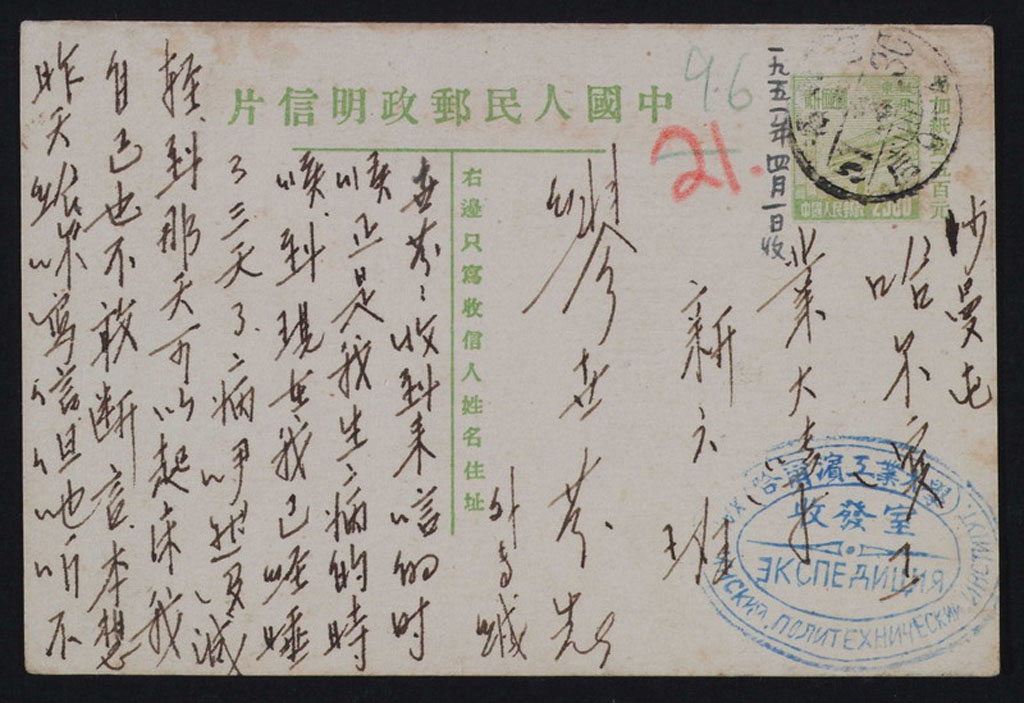 中國人民郵政明信片
9.6
21.
一九五二年四月一日收
加紙
百元
中國人民郵政
沙曼屯
哈尔濱工
業大學
新六班
世芬
右邊只寫收信人姓名住址
世芬：收到来信的时
候正是我生病的時
候．到現在我已经睡
了三天了．病
輕．到那天可以起床我
自己也不敢断言．本想
昨天给你寫信但他听不
哈爾濱工業大學
收發室
ЭКСПЕДИЦИЯ
ПОЛИТЕХНИЧЕСКИЙ